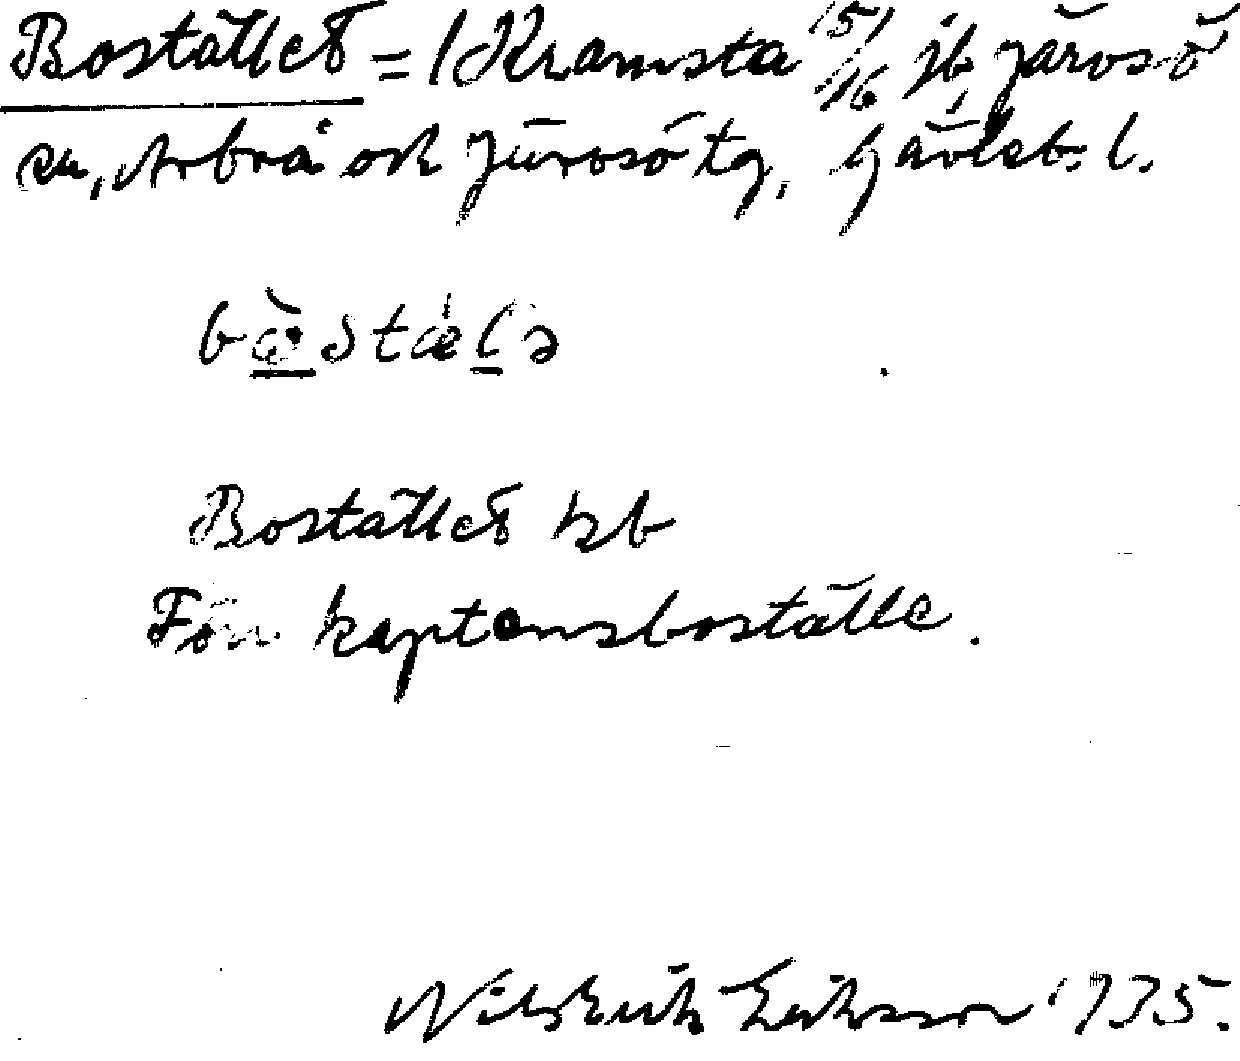 Bostället = 1 Kramsta 15/16 jb, Järvsö
sn, Arbrå och Järvsö tg, Gävleb. l.
Bostället kb
Förr kaptensboställe.
Nils Erik Eriksson 1935.